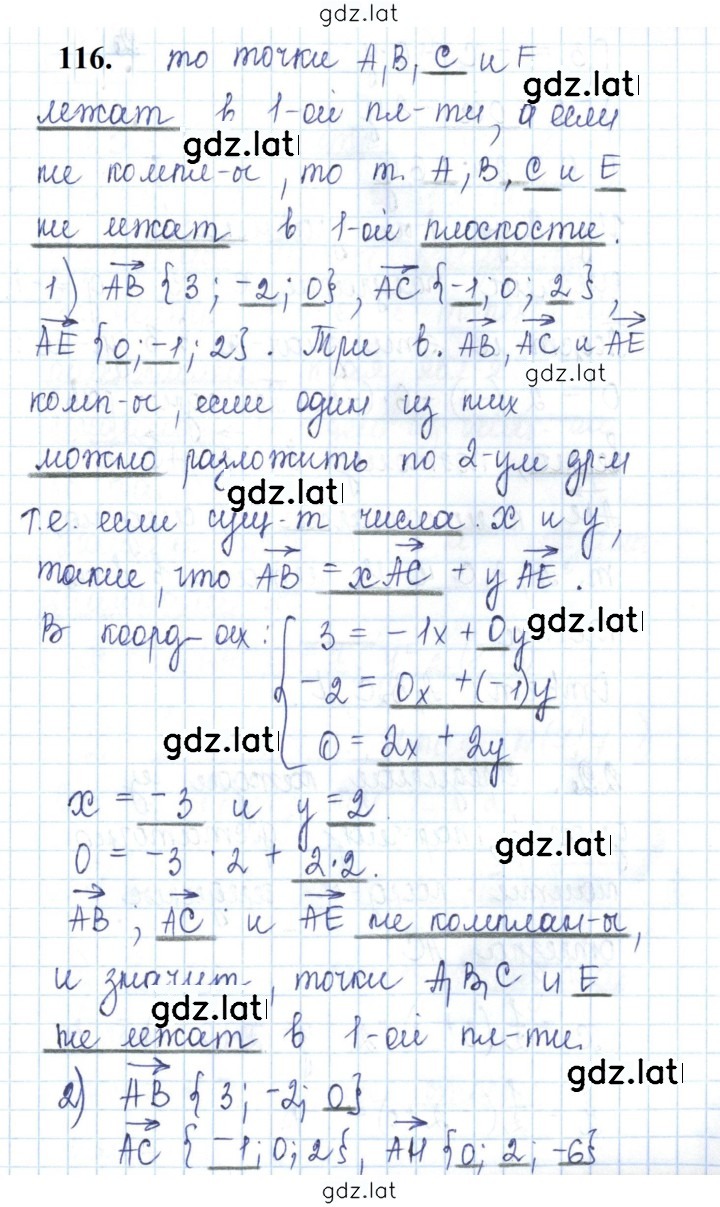 gdz.lat
116. то точки A, B, C и F
gdz.lat
лежат в 1-ой пл-ти, а если
gdz.lat
не компл-ы, то т. A, B, C и E
не лежат в 1-ой плоскости.
1) AB {3; -2; 0}, AC {-1; 0; 2},
AE {0; -1; 2}. Три в. AB, AC и AE
gdz.lat
комп-ы, если один из них
можно разложить по 2-ум др-м
gdz.lat
т.е. если сущ-т числа x и y,
такие, что AB = xAC + yAE.
В коорд-ах: 3 = -1x + 0y
gdz.lat
-2 = 0x + (-1)y
gdz.lat
0 = 2x + 2y
x = -3 и y = 2
gdz.lat
0 = -3 · 2 + 2·2.
AB; AC и AE не комплан-ы,
и значит, точки A, B, C и E
gdz.lat
не лежат в 1-ой пл-ти.
gdz.lat
2) AB {3; -2; 0}
AC {-1; 0; 2}, AH {0; 2; -6}
gdz.lat